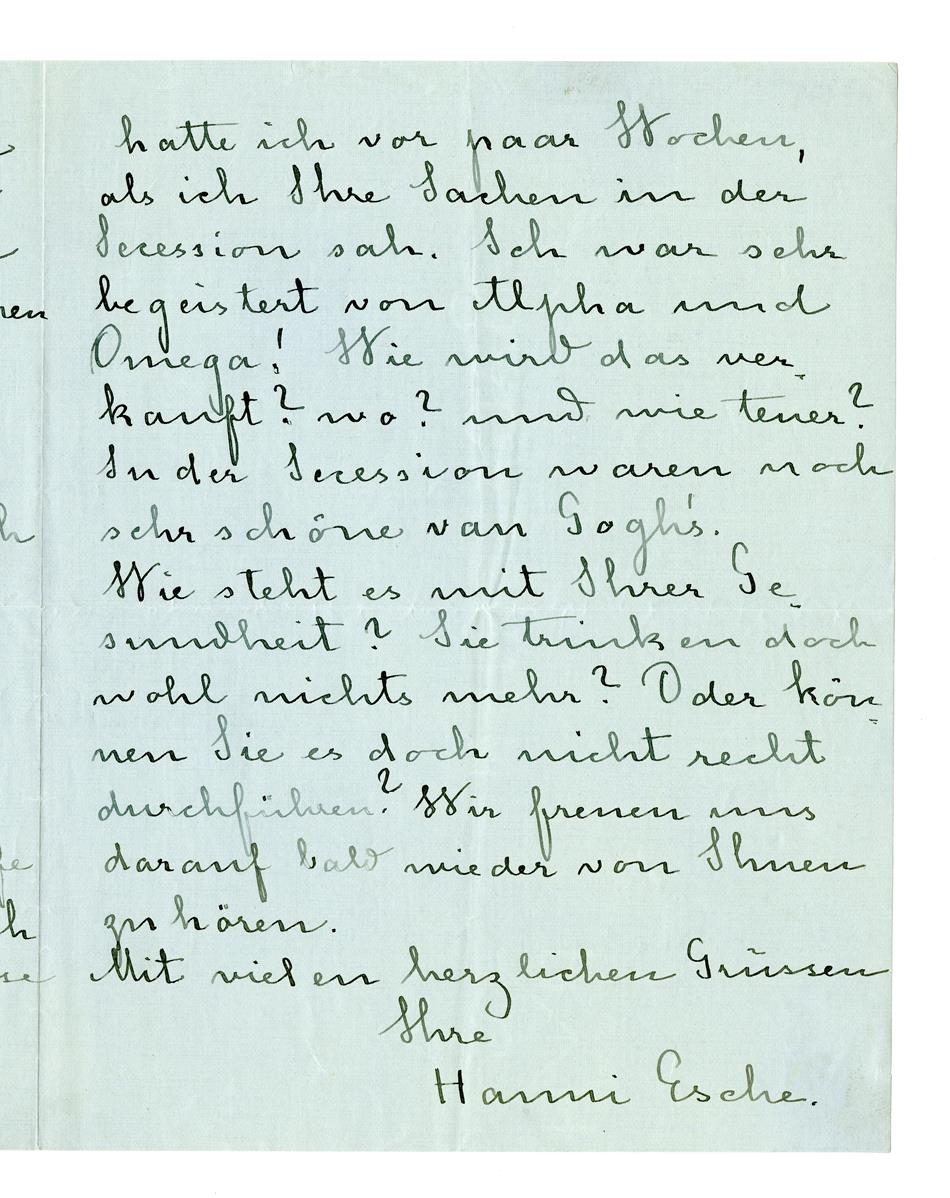 hatte ich vor paar Wochen,
als ich Ihre Sachen in der
Secession sah. Ich war sehr
begeistert von Alpha und
Omega! Wie wird das ver-
kauft? wo? und wie teuer?
In der Secession waren noch
sehr schöne van Gogh's.
Wie steht es mit Ihrer Ge-
sundheit? Sie trinken doch
wohl nichts mehr? Oder kön-
nen Sie es doch nicht recht
durchführen? Wir freuen uns
darauf bald wieder von Ihnen
zu hören.
Mit vielen herzlichen Grüssen
Ihre
Hanni Esche.